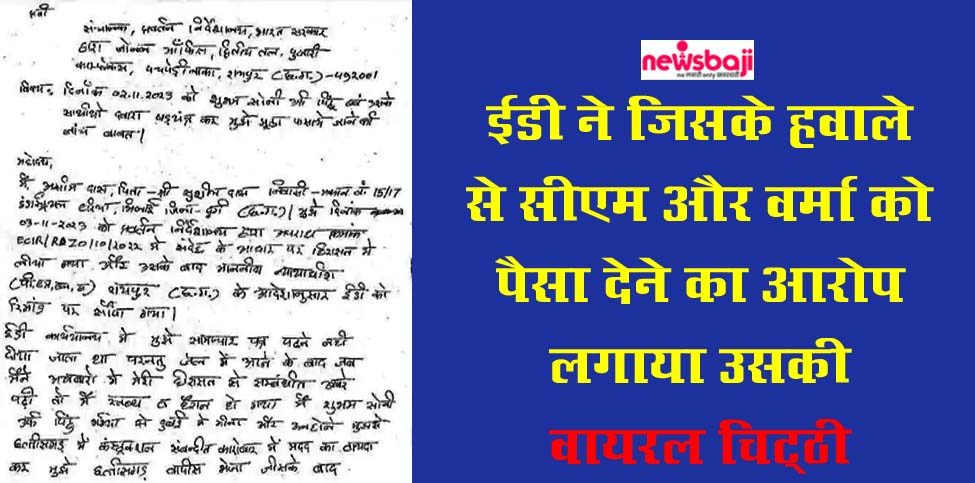 प्रति
संचालक, प्रवर्तन निर्देशालय, भारत सरकार
द्वितीय तल, पुजारी
काम्प्लेक्स, पचपेड़ीनाका, रायपुर (छ.ग.) - 492001
विषय - दिनाँक 02.11.2023 को शुभम सोनी उर्फ पिंटू एवं उसके
साथीयो द्वारा षड़यंत्र कर मुझे झूठा फसाये जाने की
जांच बाबत।
महोदय,
मैं असीम दास, पिता - श्री सुशील दास निवासी - मकान नं 15/17
हाउसिंग बोर्ड, भिलाई जिला दुर्ग (छ.ग.)। मुझे दिनांक
03-11-2023 को प्रवर्तन निर्देशालय द्वारा अपराध क्रमांक
ECIR/RPZO/10/2022 में संदेह के आधार पर हिरासत में
लीया गया और उसके बाद माननीय न्यायाधीश
रायपुर (छ.ग.) के आदेशानुसार ईडी को
रिमांड पर सौंपा गया।
ईडी कार्यालय में मुझे समाचार पत्र पढ़ने नहीं
दीया जाता था परन्तु जेल में आने के बाद जब
मैंने अखबारो में मेरी हीरासत से सम्बंधीत खबर
पढ़ी तो मैं स्तब्ध व हैरान हो गया मैं शुभम सोनी
उर्फ पिंटू भईया से दुबई में मीला और उन्होंने मुझसे
छत्तीसगढ़ में कंस्ट्रक्शन संबन्धीत कारोबार में मदद का वायदा
कर मुझे छत्तीसगढ़ वापीस भेजा जीसके बाद
newsbaji
ईडी ने जिसके हवाले
से सीएम और वर्मा को
पैसा देने का आरोप
लगाया उसकी
वायरल चिट्ठी